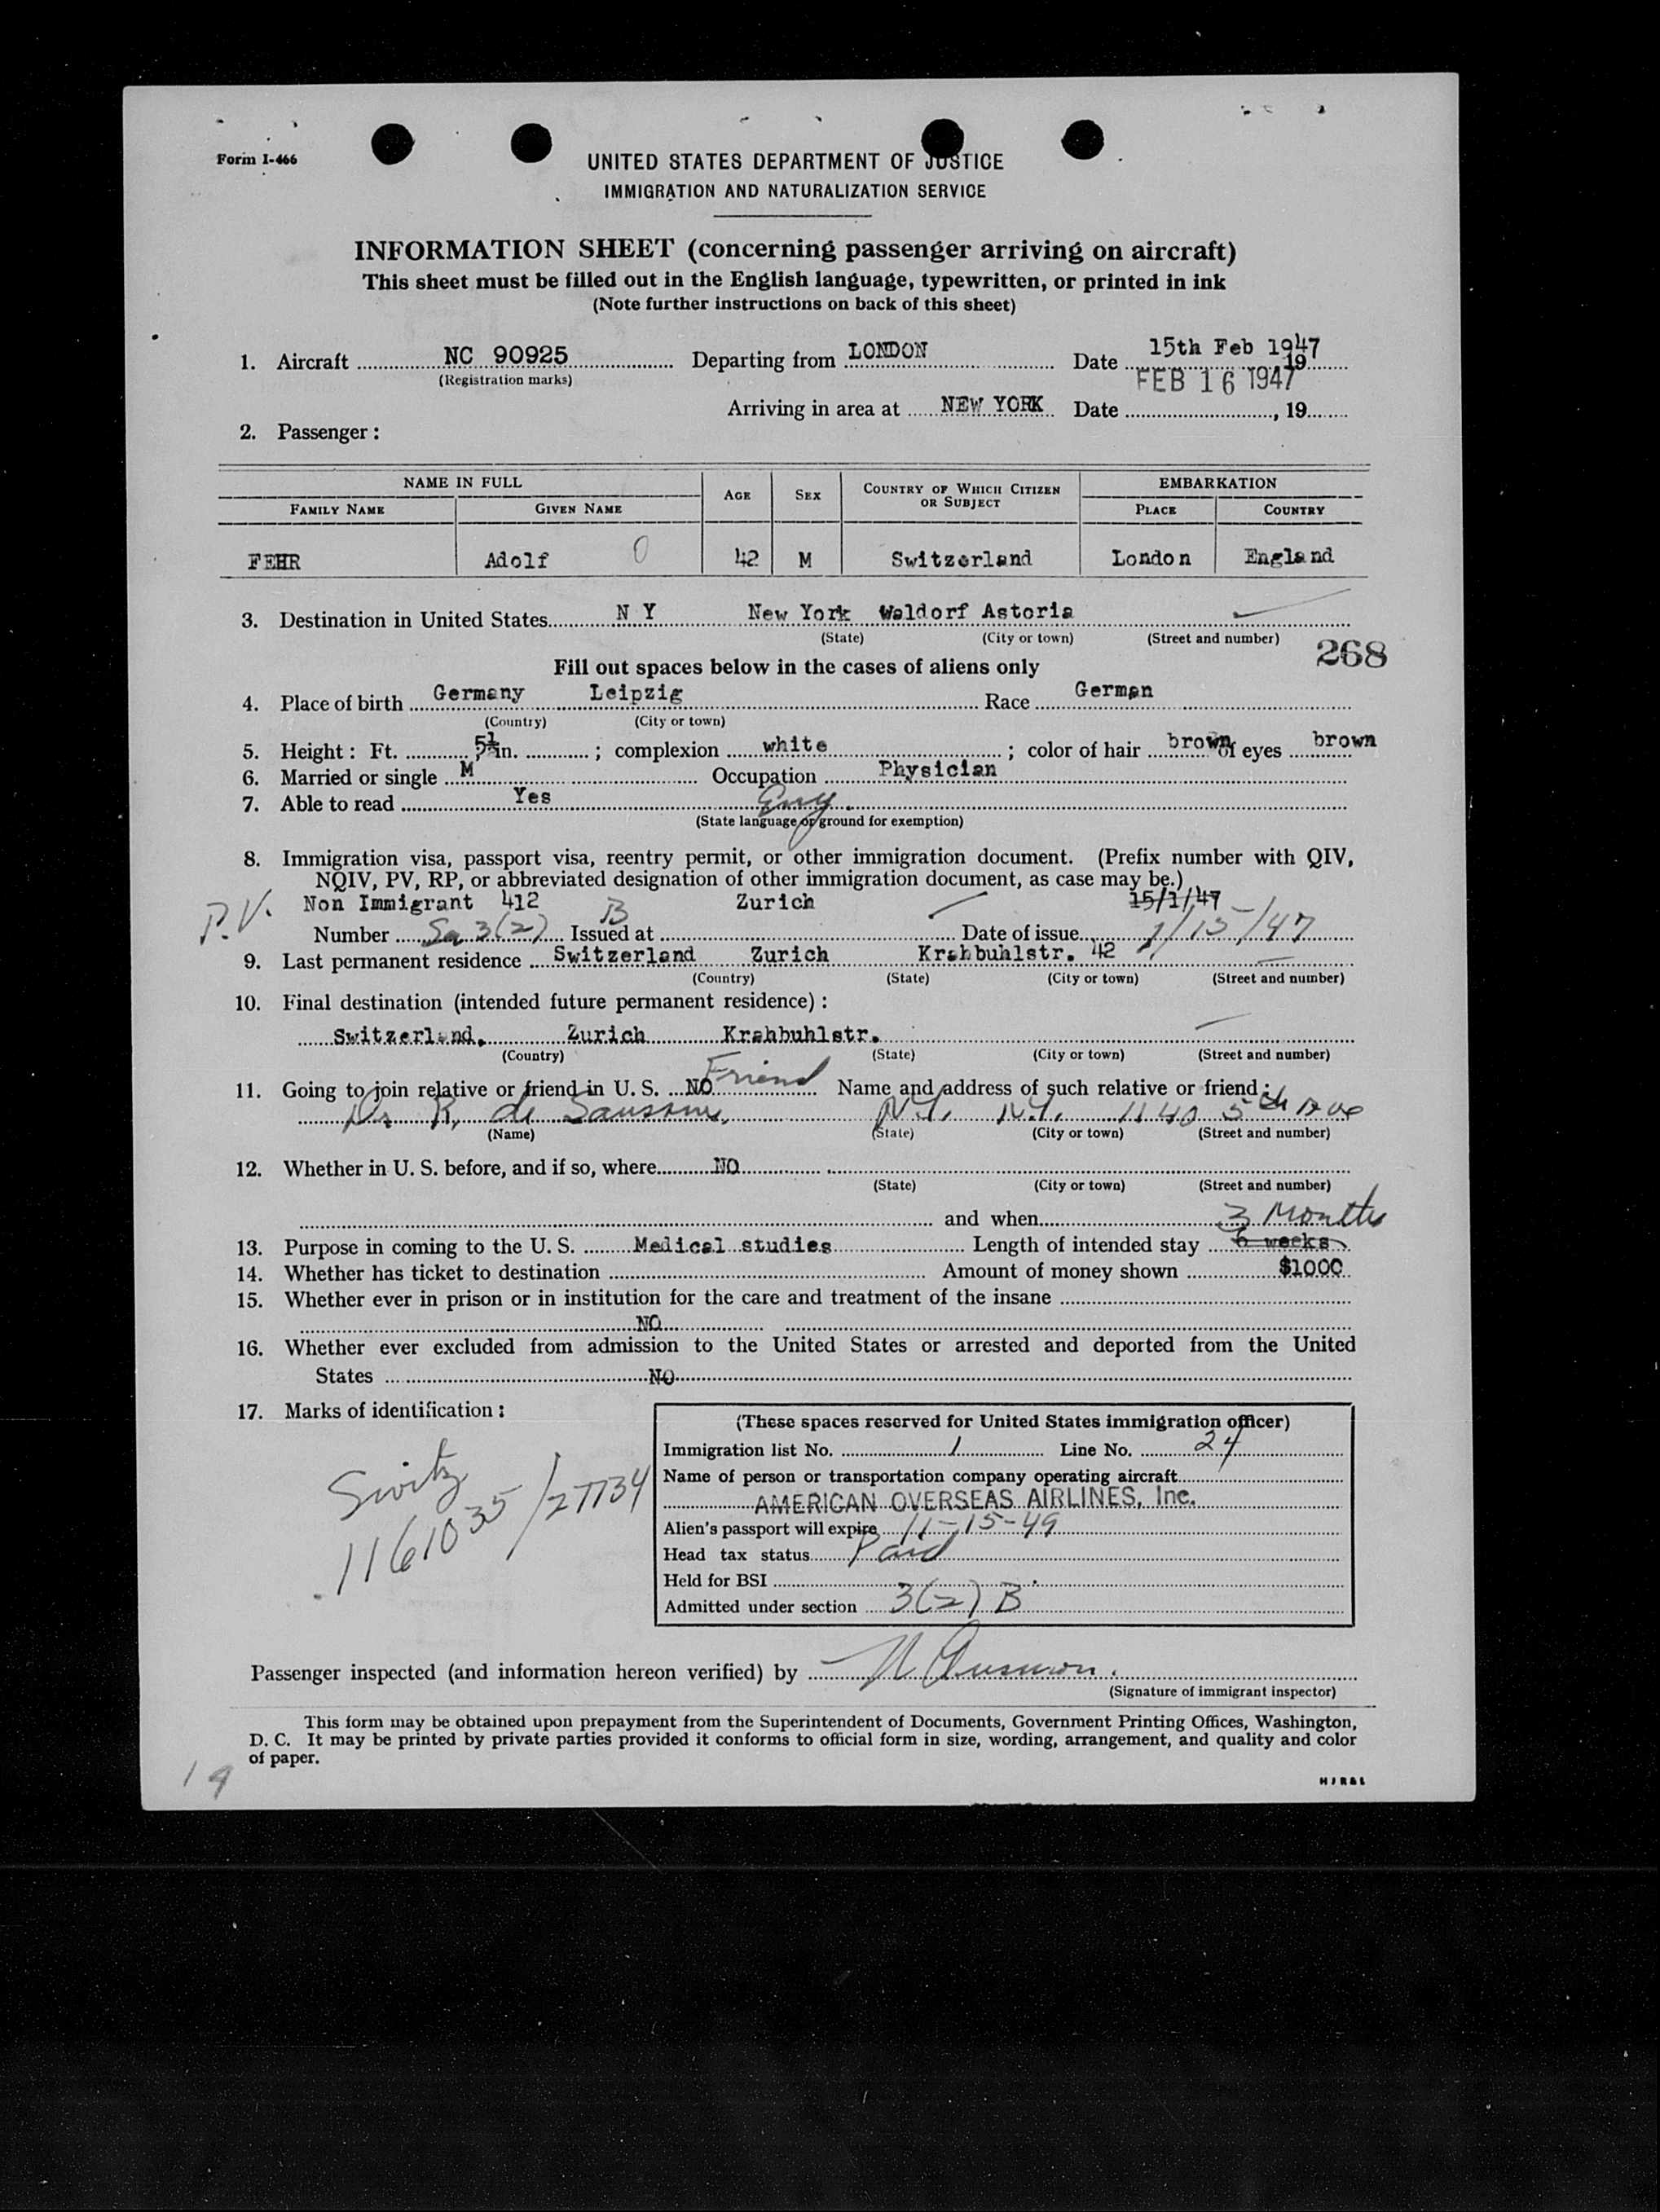 Form I-466
UNITED STATES DEPARTMENT OF JUSTICE
IMMIGRATION AND NATURALIZATION SERVICE
INFORMATION SHEET (concerning passenger arriving on aircraft)
This sheet must be filled out in the English language, typewritten, or printed in ink
(Note further instructions on back of this sheet)
1. Aircraft NC 90925 Departing from LONDON Date 15th Feb 1947, 19
(Registration marks) FEB 16 1947
Arriving in area at NEW YORK Date , 19
2. Passenger:
NAME IN FULL AGE SEX COUNTRY OF WHICH CITIZEN OR SUBJECT EMBARKATION
FAMILY NAME GIVEN NAME PLACE COUNTRY
FEHR Adolf 0 42 M Switzerland London England
3. Destination in United States N Y New York Waldorf Astoria
(State) (City or town) (Street and number)
268
Fill out spaces below in the cases of aliens only
4. Place of birth Germany Leipzig Race German
(Country) (City or town)
5. Height: Ft. 5½ in. ; complexion white ; color of hair brown of eyes brown
6. Married or single M Occupation Physician
7. Able to read Yes Eng.
(State language or ground for exemption)
8. Immigration visa, passport visa, reentry permit, or other immigration document. (Prefix number with QIV,
NQIV, PV, RP, or abbreviated designation of other immigration document, as case may be.)
P.V. Non Immigrant 412 Zurich 15/1/47
Number 3(2) B Issued at Date of issue 1/15/47
9. Last permanent residence Switzerland Zurich Krahbuhlstr. 42
(Country) (State) (City or town) (Street and number)
10. Final destination (intended future permanent residence):
Switzerland, Zurich Krahbuhlstr.
(Country) (State) (City or town) (Street and number)
11. Going to join relative or friend in U. S. NO Friend Name and address of such relative or friend:
Dr R. de Saussure, N.Y. N.Y. 1140 5th Ave
(Name) (State) (City or town) (Street and number)
12. Whether in U. S. before, and if so, where NO
(State) (City or town) (Street and number)
and when 3 Months
13. Purpose in coming to the U. S. Medical studies Length of intended stay 6 weeks
14. Whether has ticket to destination Amount of money shown $1000
15. Whether ever in prison or in institution for the care and treatment of the insane
NO
16. Whether ever excluded from admission to the United States or arrested and deported from the United
States NO
17. Marks of identification:
Switz
1161035/27734
(These spaces reserved for United States immigration officer)
Immigration list No. 1 Line No. 24
Name of person or transportation company operating aircraft
AMERICAN OVERSEAS AIRLINES, Inc.
Alien's passport will expire 11-15-49
Head tax status Paid
Held for BSI
Admitted under section 3(2) B
Passenger inspected (and information hereon verified) by
(Signature of immigrant inspector)
This form may be obtained upon prepayment from the Superintendent of Documents, Government Printing Offices, Washington,
D. C. It may be printed by private parties provided it conforms to official form in size, wording, arrangement, and quality and color
of paper.
19